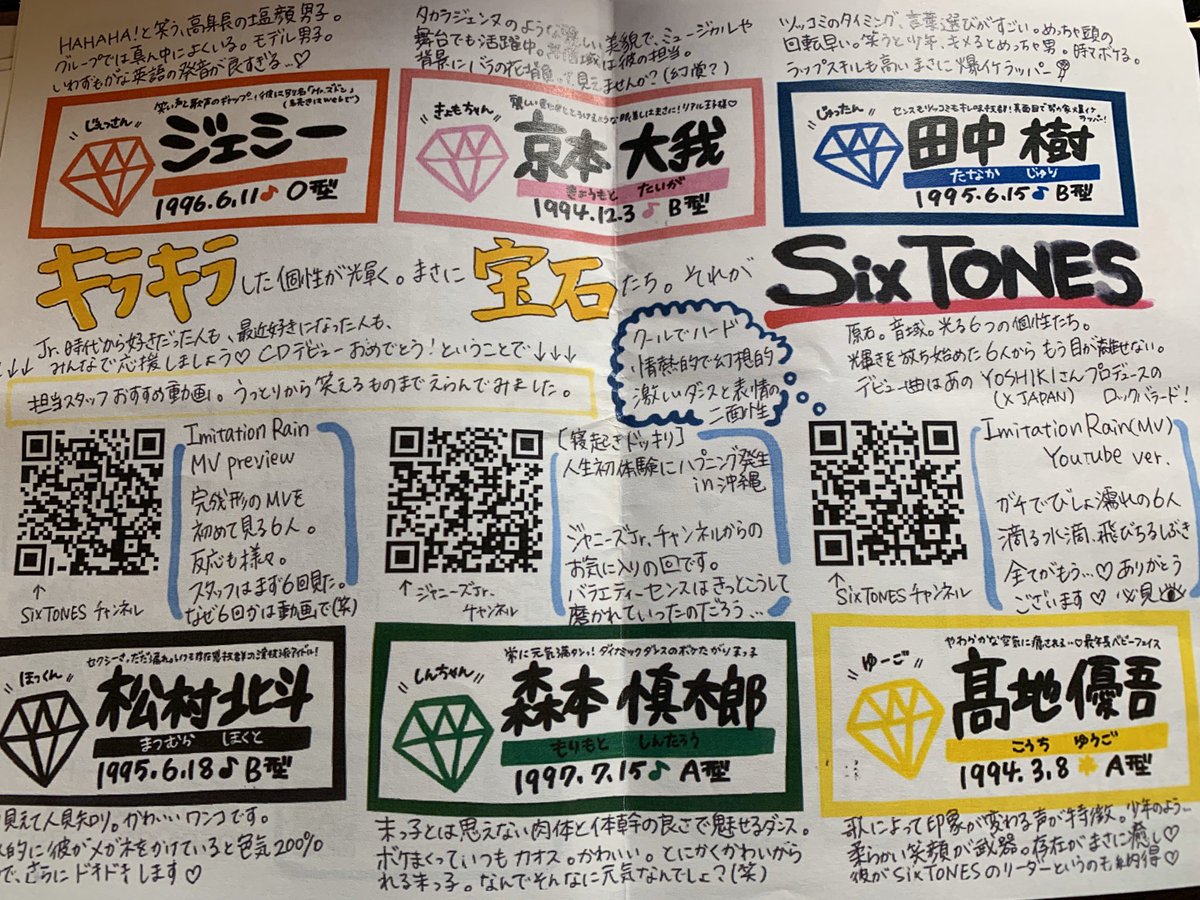 HAHAHA!と笑う、高身長の塩顔男子。
グループでは真ん中によくいる。モデル男子。
いわずもがな英語の発音が良すぎる…♡
タカラジェンヌのような 美貌で、ミュージカルや
舞台でも活躍中。 は彼の担当。
背景にバラの花 見えませんか?(幻覚?)
ツッコミのタイミング、言葉選びがすごい。めっちゃ頭の
回転早い。笑うと少年、キメるとめっちゃ男。時々ボケる。
ラップスキルも高いまさに爆イケラッパー
じぇっさん
ジェシー
1996.6.11♪ O型
きょもちゃん
京本 大我
きょうもと たいが
1994.12.3♪B型
じゅったん
田中 樹
たなか じゅり
1995.6.15♪B型
キラキラした個性が光輝く。まさに宝石たち。それが SixTONES
Jr.時代から好きだった人も、最近好きになった人も、
みんなで応援しましょう♡ CDデビューおめでとう!ということで↓↓↓
担当スタッフおすすめ動画。うっとりから笑えるものまでえらんでみました。
クールでハード
情熱的で幻想的
激しいダンスと表情の
二面性
原石。音域。光る6つの個性たち。
輝きを放ち始めた6人からもう目が離せない。
デビュー曲はあのYOSHIKIさんプロデュースの
(X JAPAN) ロックバラード!
Imitation Rain
MV preview
完成形のMVを
初めて見る6人。
反応も様々。
スタッフはまず6回見た。
なぜ6回かは動画で(笑)
↑
SixTONESチャンネル
[寝起きドッキリ]
人生初体験にハプニング発生
in沖縄
ジャニーズJr.チャンネルからの
お気に入りの回です。
バラエティーセンスはきっとこうして
磨かれていったのだろう…
↑
ジャニーズJr.
チャンネル
Imitation Rain(MV)
Youtube ver.
ガチでびしょ濡れの6人
滴る水滴、飛びちるしぶき
全てがもう…♡ありがとう
ございます♡必見
↑
SixTONESチャンネル
ほっくん
松村北斗
まつむら ほくと
1995.6.18♪B型
しんちゃん
常に元気満タンッ!ダイナミックダンスのボケたがりまっ子
森本 慎太郎
もりもと しんたろう
1997.7.15♪A型
やわらかな空気に癒される…♡最年長ベビーフェイス
ゆーご
髙地優吾
こうち ゆうご
1994.3.8 A型
見えて人見知り。かわいいワンコです。
的に彼がメガネをかけていると色気200%
で、さらにドキドキします♡
末っ子とは思えない肉体と体幹の良さで魅せるダンス。
ボケまくっていつもカオス。かわいい。とにかくかわいがら
れる末っ子。なんでそんなに元気なんでしょ?(笑)
歌によって印象が変わる声が特徴。少年のよう…
柔らかい笑顔が武器。存在がまさに癒し♡
彼がSixTONESのリーダーというのも納得♡